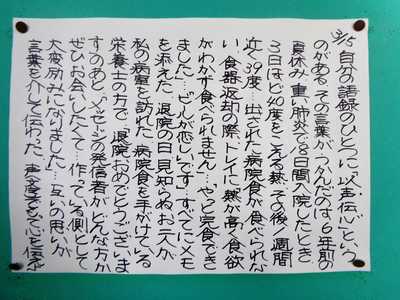 自分の語録のひとつに「以声伝心」という
のがある。その言葉がうかんだのは、6年前の
夏休み。重い肺炎で8日間入院したとき。
3日ほど40度をこえる熱、その後1週間
近く39度、出された病院食が食べられな
い。食器返却の際、トレイに「熱が高く食欲
がわかず食べられません…やっと完食でき
ました…ビールが恋しいです」すべてにメモ
を添えた。退院の日、見知らぬお二人が
私の病室を訪れた。病院食を手がけている
栄養士の方で「退院おめでとうございま
す」のあと「メッセージの発信者がどんな方か
ぜひお会いしたくて…作っている側として
大変励みになりました」…互いの思いが
言葉を介して伝わった。声(文字)で心を伝